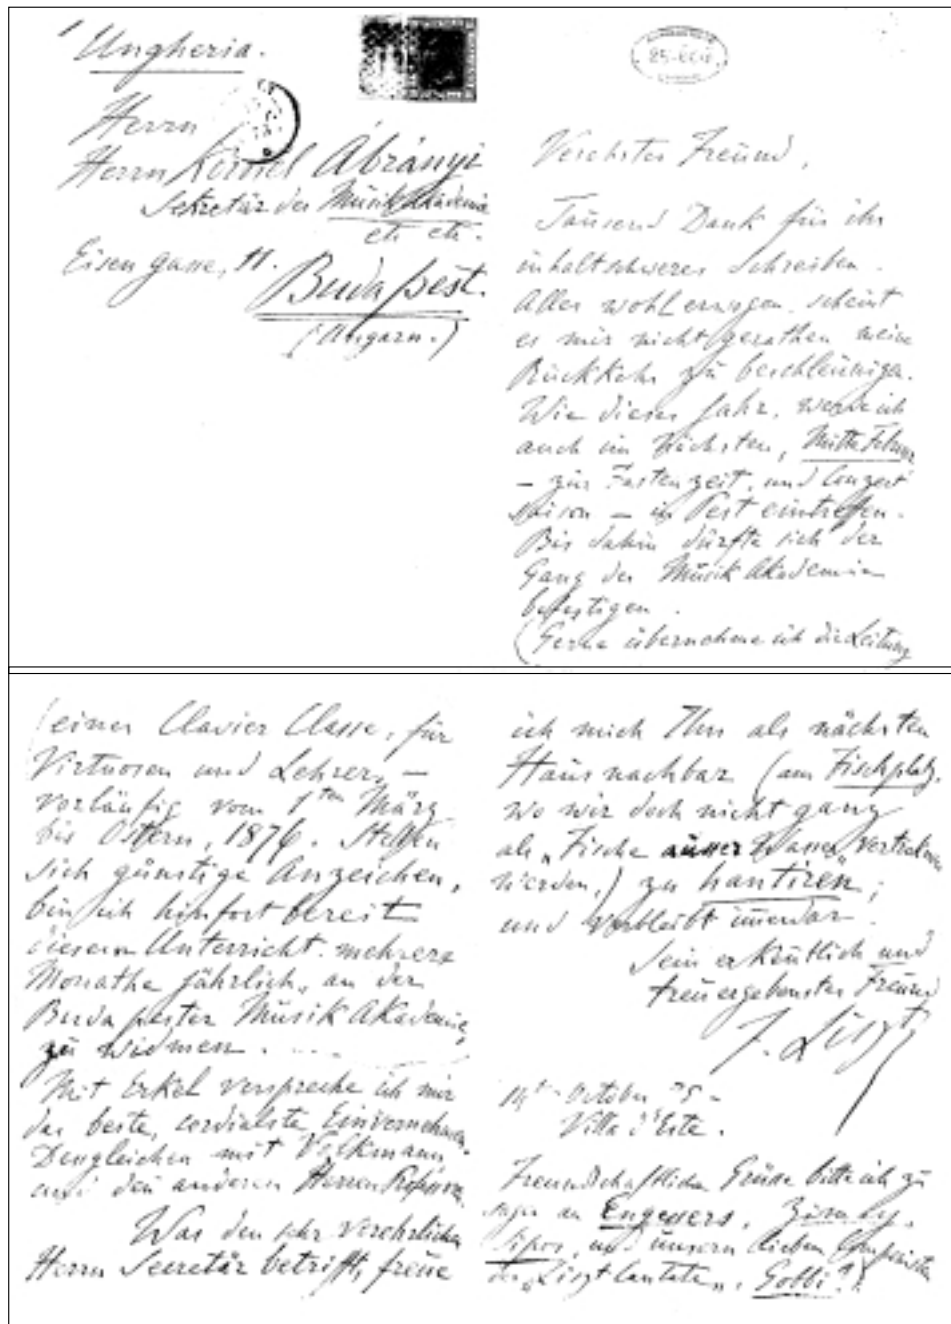 Ungheria.
Herrn
Herrn Kornél Ábrányi
Sekretär der Musik Akademie
etc etc.
Eisen gasse, 11.
Buda pest.
(Ungarn.)
Verehrter Freund,
Tausend Dank für ihr
inhaltschweres Schreiben.
Alles wohl erwogen, scheint
es mir nicht gerathen meine
Rückkehr zu beschleunigen.
Wie dieses Jahr, werde ich
auch im Nächsten, Mitte Februar
– zur Fastenzeit, und Conzert
saison – in Pest eintreffen.
Bis dahin dürfte sich der
Gang der Musik Akademie
befestigen.
(Gerne übernehme ich die Leitung
(einer Clavier Classe, für
Virtuosen und Lehrer, –
vorläufig vom 1ten März
bis Ostern, 1876. Stellen
sich günstige Anzeichen,
bin ich hinfort bereit
diesem Unterricht mehrere
Monathe jährlich, an der
Buda pester Musik Akademie,
zu widmen.
Mit Erkel verspreche ich mir
das beste, cordialste Einvernehmen.
Desgleichen mit Volkmann
und den anderen Herren Professoren.
Was den sehr verehrlichen
Herrn Secretär betrifft, freue
ich mich Ihm als nächsten
Haus nachbar (am Fischplatz,
wo wir doch nicht ganz
als „Fische ausser Wasser" vertrocknen
werden,) zu hantiren;
und verbleibt immerdar
Sein erkenntlich und
treu ergebenster Freund
F. Liszt
14t October 75 –
Villa d'Este.
Freundschaftliche Grüsse bitte ich zu
sagen an Engessers, Zimay,
Sipos, und unsern lieben Componisten
der „Liszt Cantate", Gobbi!